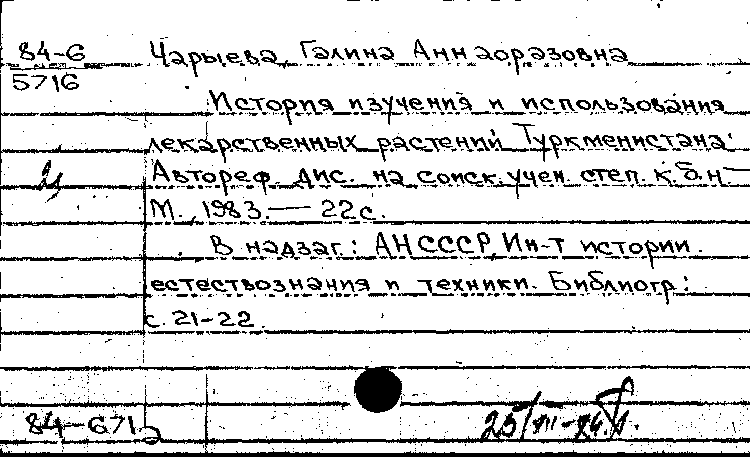 84-6
5716
Чарыева, Галина Аннаоразовна
История изучения и использования
лекарственных растений Туркменистана:
Автореф. дис. на соиск. учен. степ. к. б. н. —
М., 1983. — 22 с.
В надзаг.: АН СССР, Ин-т истории
естествознания и техники. Библиогр.:
с. 21-22.
84-671